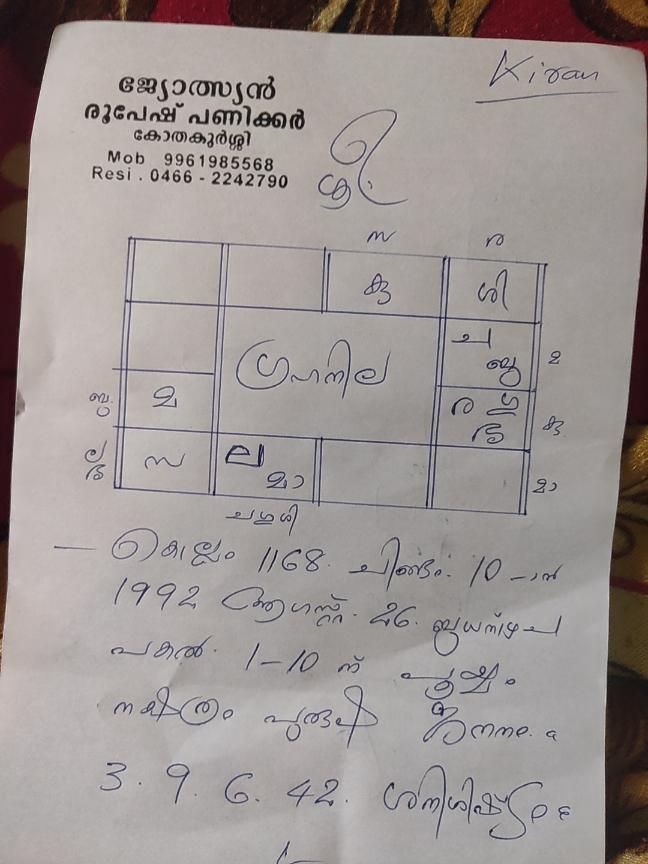 Kiran
ജ്യോത്സ്യൻ
രൂപേഷ് പണിക്കർ
കോതകുർശ്ശി
Mob 9961985568
Resi . 0466 - 2242790
ശ്രീ:
സ ര
കു ശി
ച
ബു മ
ഗ്രഹനില
ര ഗു
ശു കു
ബു മ
സ ല
മാ മാ
ചഗുശി
കൊല്ലം 1168 ചിങ്ങം 10-ാൻ
1992 ആഗസ്റ്റ് 26 ബുധനിഴ്ച
പകൽ 1-10 ന് പൂയ്യം
നക്ഷത്രം പുരുഷ ജനനം
3. 9. 6. 42. ശനിശിഷ്ടം